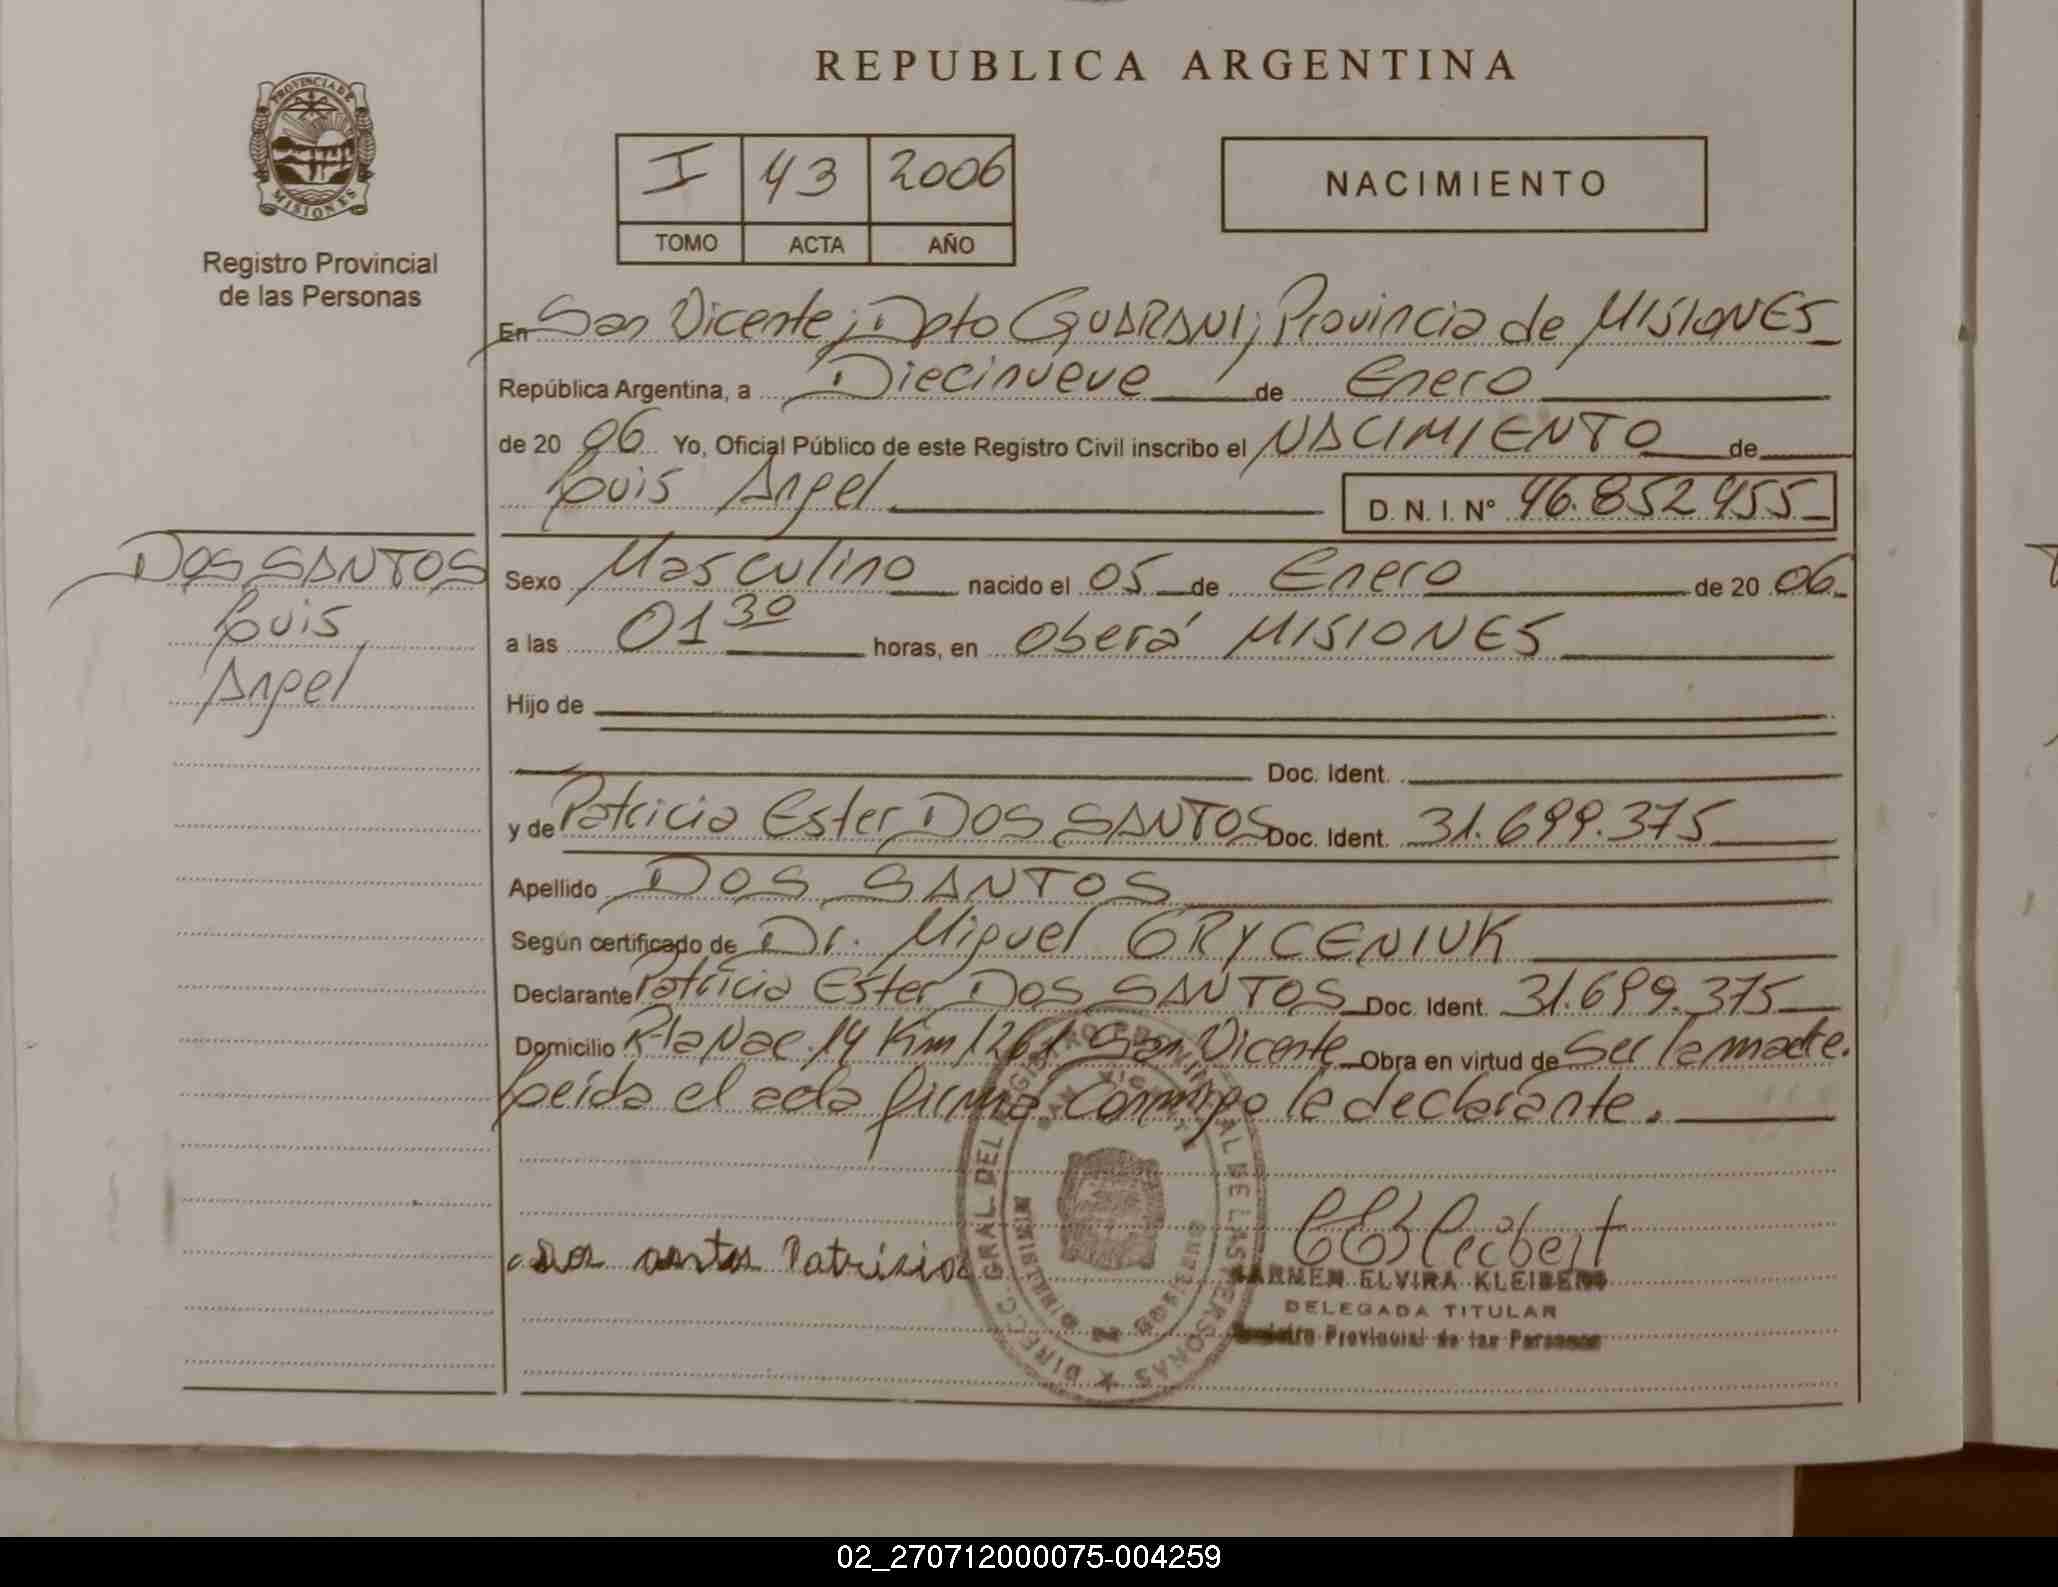 REPUBLICA ARGENTINA
PROVINCIA DE MISIONES
Registro Provincial
de las Personas
I 43 2006
TOMO ACTA AÑO
NACIMIENTO
En San Vicente, Dpto GUARANI, Provincia de MISIONES
República Argentina, a Diecinueve de Enero
de 20 06 Yo, Oficial Público de este Registro Civil inscribo el NACIMIENTO de
Luis Angel D.N.I. Nº 46.852455
DOS SANTOS
Luis
Angel
Sexo Masculino nacido el 05 de Enero de 20 06
a las 01 30 horas, en Oberá MISIONES
Hijo de
Doc. Ident.
y de Patricia Ester DOS SANTOS Doc. Ident. 31.699.375
Apellido DOS SANTOS
Según certificado de Dr. Miguel GRYCENIUK
Declarante Patricia Ester DOS SANTOS Doc. Ident. 31.699.375
Domicilio Rta Nac. 14 Km 1261 San Vicente Obra en virtud de Ser la madre.
Leída el acta firma Conmigo la declarante.
DIREC. GRAL. DEL REGISTRO PROVINCIAL DE LAS PERSONAS
SAN VICENTE
MISIONES
Dos antos Patrisia
CARMEN ELVIRA KLEIBERT
DELEGADA TITULAR
Registro Provincial de las Personas
02_270712000075-004259